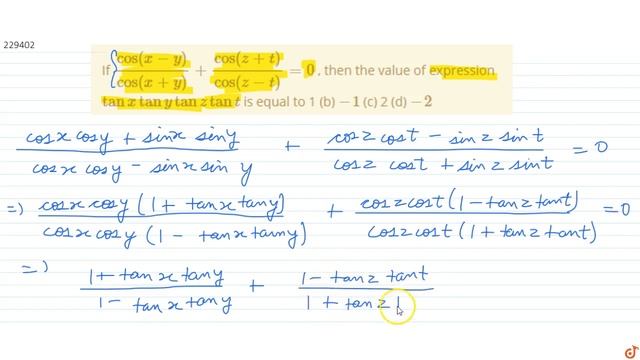 229402
If {cos(x − y)/cos(x + y) + cos(z + t)/cos(z − t) = 0 , then the value of expression
tan x tan y tan z tan t is equal to 1 (b) −1 (c) 2 (d) −2
(cosx cosy + sinx siny)/(cosx cosy − sinx sin y) + (cosz cost − sinz sin t)/(cosz cost + sinz sint) = 0
=) (cosx cosy (1 + tanx tany))/(cosx cosy (1 − tanx tany)) + (coszcost (1 − tanz tant))/(coszcost (1 + tanz tant)) = 0
=) (1 + tanx tany)/(1 − tanx tany) + (1 − tanz tant)/(1 + tanz